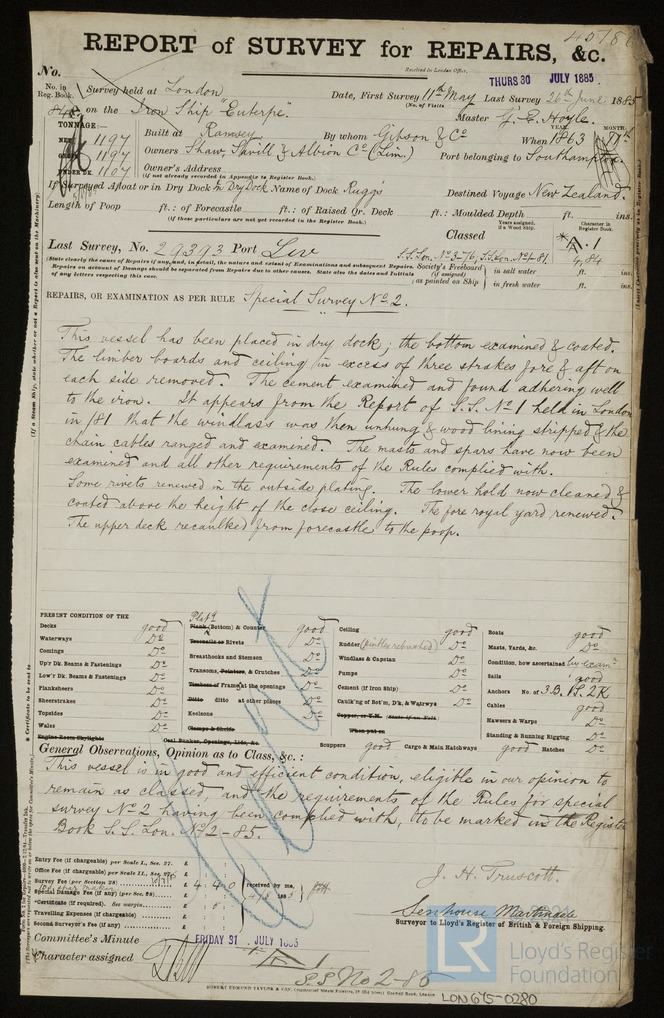 40786
REPORT of SURVEY for REPAIRS, &c.
No.
Received in London Office,
THURS 30 JULY 1885
No. in Reg. Book.
Survey held at London
Date, First Survey 11th May Last Survey 26th June 1885
(No. of Visits
on the Iron Ship "Euterpe".
Master G. E. Hoyle.
TONNAGE:—
NET 1197
GROSS 1197
UNDER DK. 1107
Built at Ramsey
By whom Gibson & Co
YEAR. MONTH.
When 1863 11th
Owners Shaw, Savill & Albion Co (Lim.)
Port belonging to Southampton
Owner's Address
(if not already recorded in Appendix to Register Book.)
If Surveyed Afloat or in Dry Dock In Dry Dock Name of Dock Rugg's
Destined Voyage New Zealand.
Length of Poop ft.: of Forecastle ft.: of Raised Qr. Deck ft.: Moulded Depth ft. ins.
(if these particulars are not yet recorded in the Register Book.)
Classed
Years assigned, if a Wood Ship.
Character in Register Book.
Last Survey, No. 29393 Port Liv
S.S. Lon. No 3-76, S.S. Lon. No 1-81
A·1
4,84
(State clearly the causes of Repairs, if any, and, in detail, the nature and extent of Examinations and subsequent Repairs.
Repairs on account of Damage should be separated from Repairs due to other causes. State also the dates and initials
of any letters respecting this case.
Society's Freeboard (if assigned) as painted on Ship
in salt water ft. ins.
in fresh water ft. ins.
REPAIRS, OR EXAMINATION AS PER RULE Special Survey No 2.
This vessel has been placed in dry dock; the bottom examined & coated.
The limber boards and ceiling in excess of three strakes fore & aft on
each side removed. The cement examined and found adhering well
to the iron. It appears from the Report of S.S. No 1 held in London
in '81 that the windlass was then unhung & wood lining stripped & the
chain cables ranged and examined. The masts and spars have now been
examined and all other requirements of the Rules complied with.
Some rivets renewed in the outside plating. The lower hold now cleaned &
coated above the height of the close ceiling. The fore royal yard renewed.
The upper deck recaulked from forecastle to the poop.
PRESENT CONDITION OF THE
Decks good
Waterways Do
Comings Do
Up'r Dk. Beams & Fastenings Do
Low'r Dk. Beams & Fastenings Do
Planksheers Do
Sheerstrakes Do
Topsides Do
Wales Do
Engine Room Skylights
Plank Plate (Bottom) & Counter good
Treenails or Rivets Do
Breasthooks and Stemson Do
Transoms, Pointers, & Crutches Do
Timbers of Frame at the openings Do
Ditto ditto at other places Do
Keelsons Do
Clamps & Shelfs
Coal Bunker, Openings, Lids, &c.
Ceiling good
Rudder (pintles rebushed) Do
Windlass & Capstan Do
Pumps Do
Cement (if Iron Ship) Do
Caulk'ng of Bot'm, D'k, & Wat'rways Do
Copper, or Y.M. (State if on Felt)
When put on
Scuppers good Cargo & Main Hatchways good Hatches Do
Boats good
Masts, Yards, &c. Do
Condition, how ascertained by exam
Sails good
Anchors No. of 3.B. 1S. 2K
Cables good
Hawsers & Warps Do
Standing & Running Rigging Do
General Observations, Opinion as to Class, &c.:
This vessel is in good and efficient condition, eligible in our opinion to
remain as classed, and the requirements of the Rules for special
survey No 2 having been complied with, to be marked in the Register
Book S.S. Lon. No 2-85.
Entry Fee (if chargeable) per Scale I., Sec. 27. £
Office Fee (if chargeable) per Scale I., Sec. 27. £
Survey Fee (per Section 28) £ 4 4 0
Special Damage Fee (if any) (per Sec. 28) £
Certificate (if required). See margin. £
Travelling Expenses (if chargeable) £
Second Surveyor's Fee (if any) £
received by me,
J. H. Truscott.
Senhouse Martindale
Surveyor to Lloyd's Register of British & Foreign Shipping.
Committee's Minute FRIDAY 31 JULY 1885
Character assigned
S.S. No 2-85
ROBERT EDMUND TAYLOR & SON,
Lloyd's Register
Foundation
LR
LON675-0280